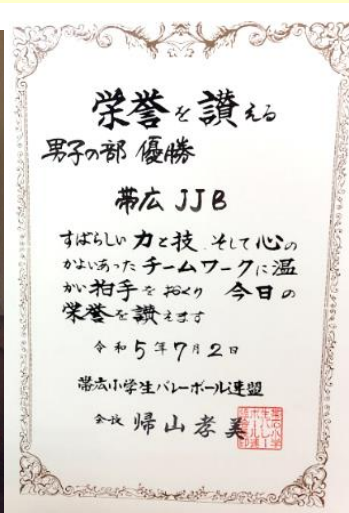 栄誉を讃える
男子の部 優勝
帯広 JJB
すばらしい力と技 そして心の
かよいあったチームワークに温
かい拍手をおくり 今日の
栄誉を讃えます
令和5年7月2日
帯広小学生バレーボール連盟
会長 帰山孝美